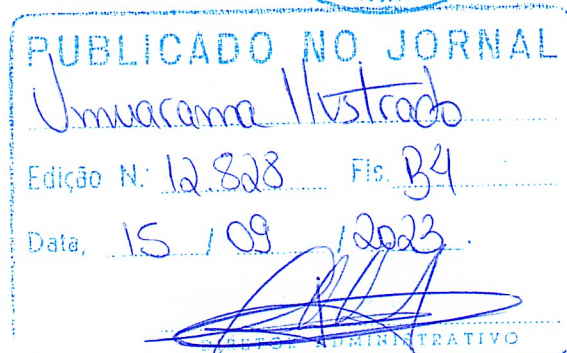 PUBLICADO NO JORNAL
Umuarama Ilustrado
Edição N.: 12.828 Fls. B4
Data, 15 / 09 / 2023.
DIRETOR ADMINISTRATIVO